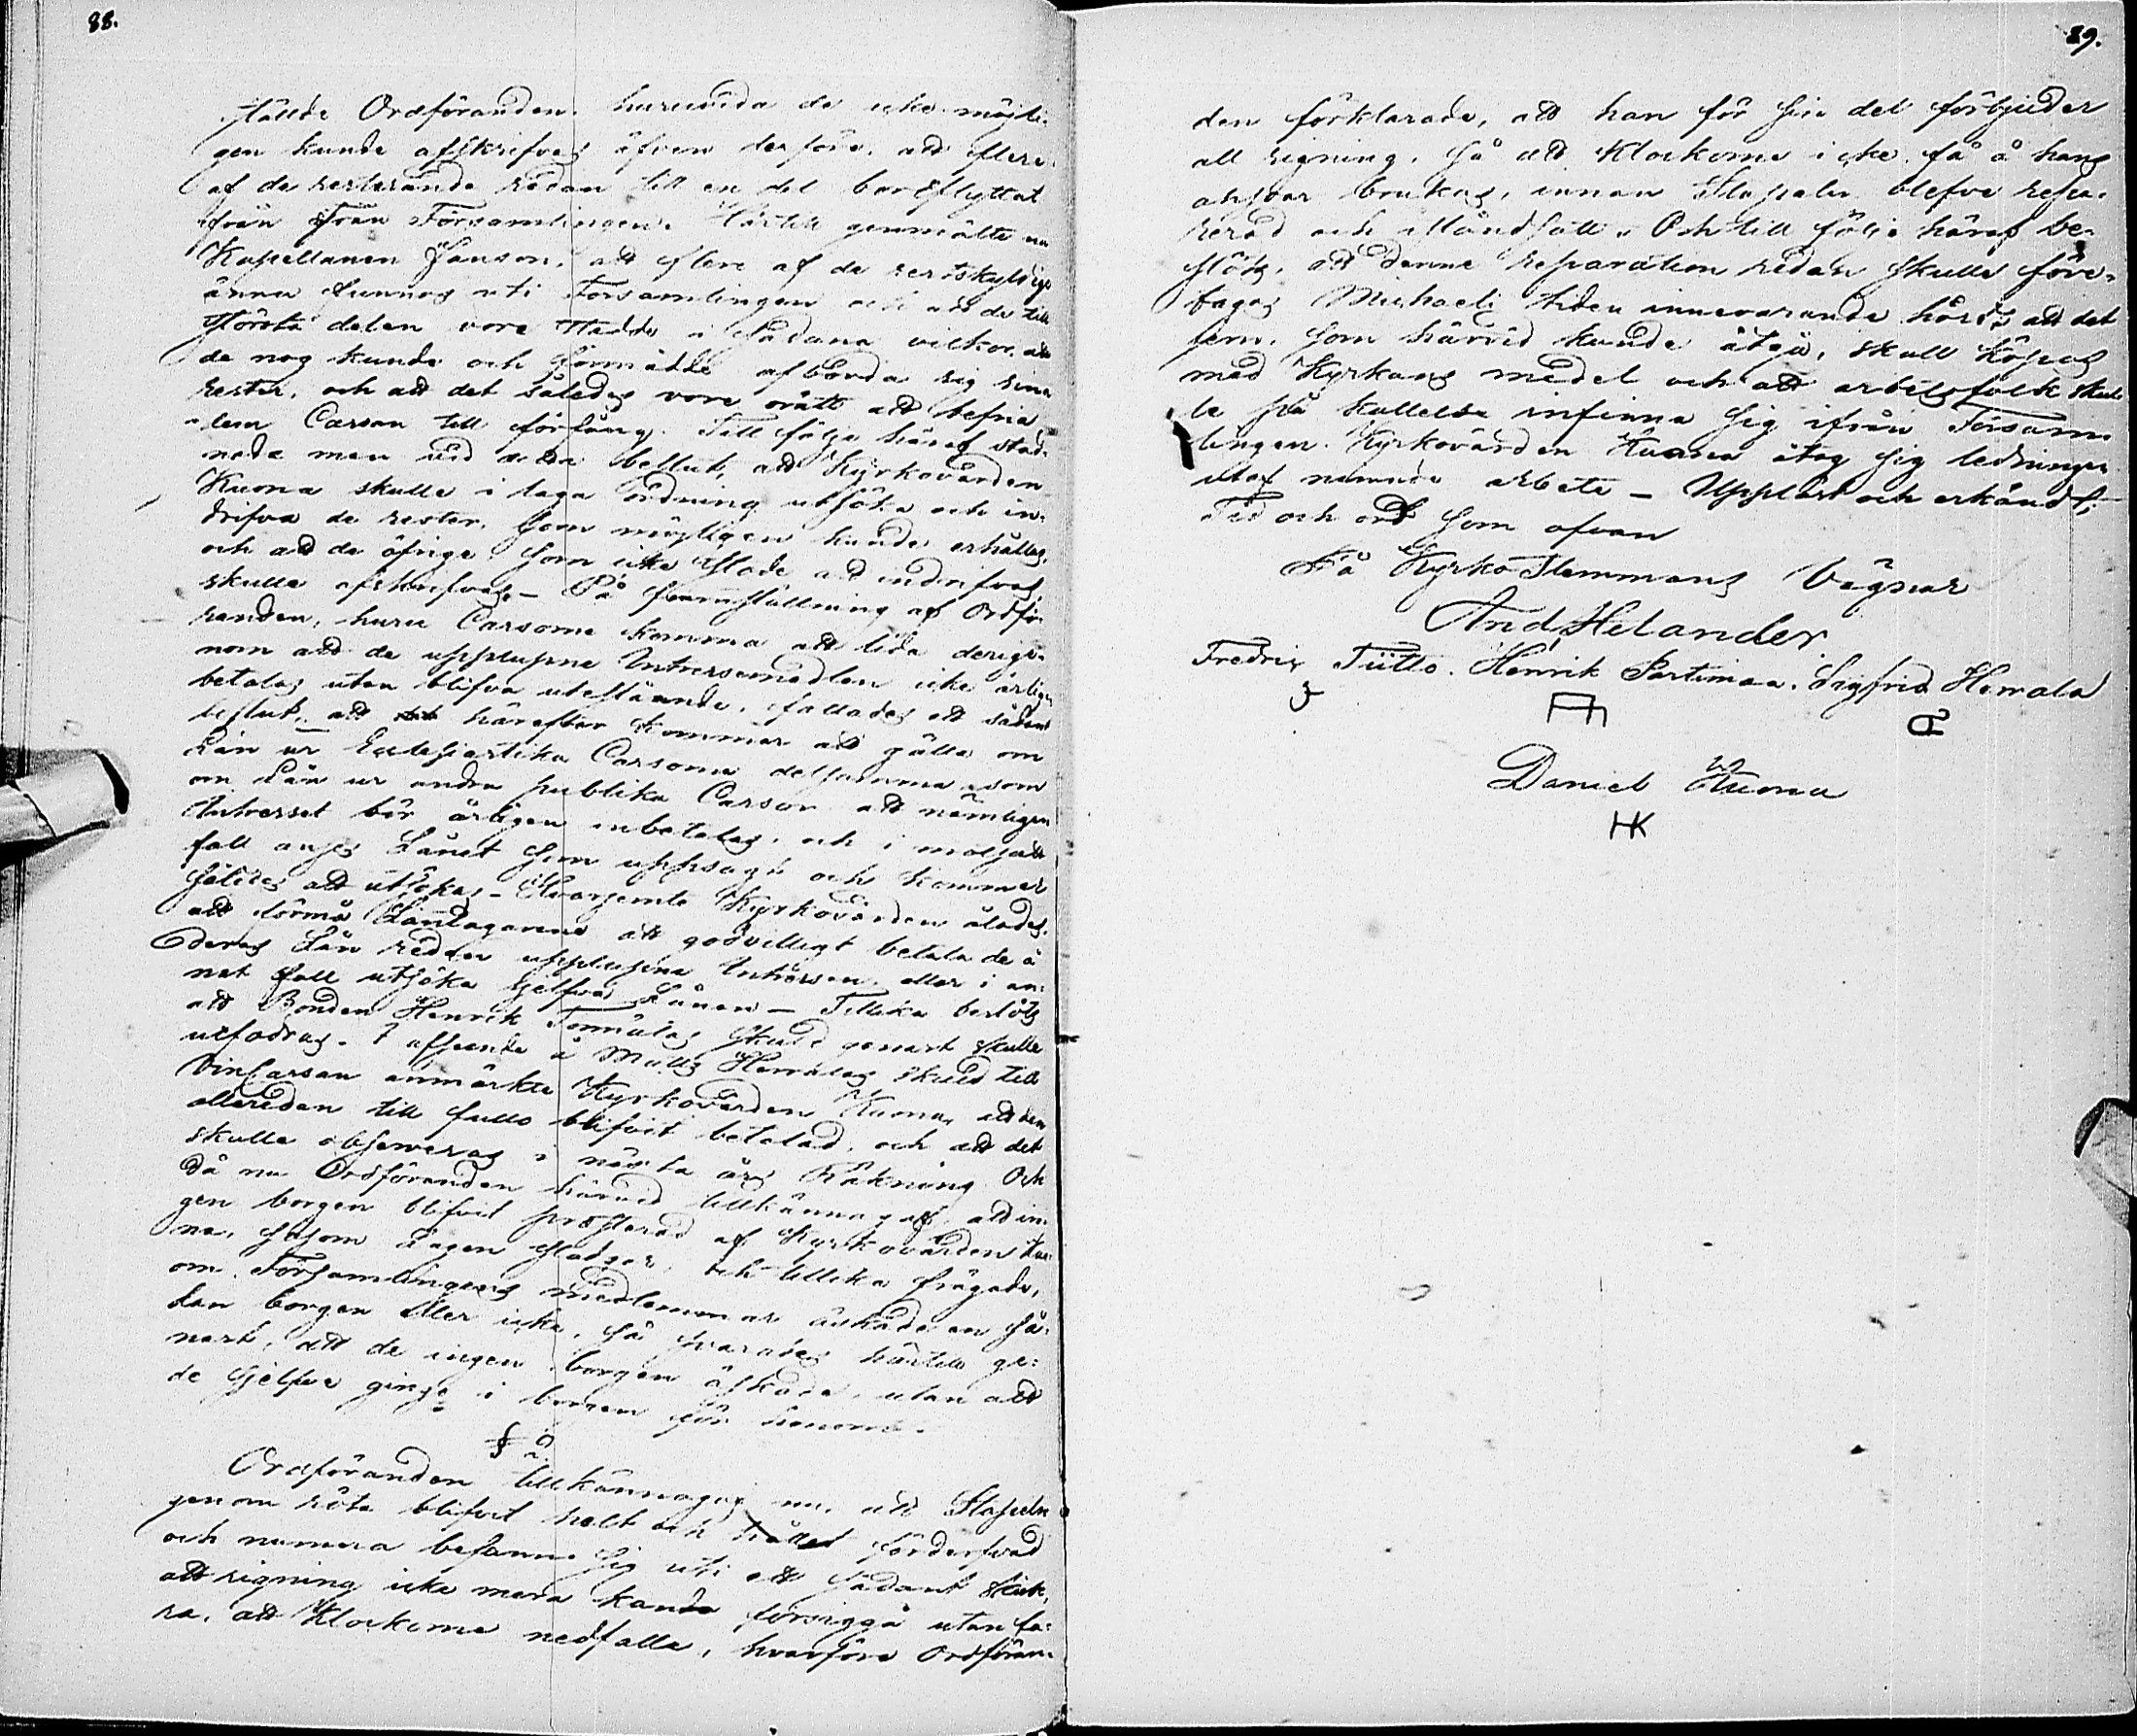 88.
ställde Ordföranden huruvida de icke möjli-
gen kunde afskrifvas äfven derföre, att flere
af de resterande redan till en del bortflyttat
från Församlingen. Härtill genmälte nu
Kapellanen Janson, att flere af de restskyldige
ännu funnos uti Församlingen och att de till
största delen vore stadde i sådana vilkor, att
de nog kunde och förmådde afbörda sig sina
rester, och att det således vore orätt att befria
dem Cassan till förfång. Till följe häraf stad-
nade man vid det beslut, att Kyrkovärden
Kuona skulle i laga ordning utsöka och in-
drifva de rester, som möjligen kunde erhållas,
och att de öfrige, som icke stode att indrifvas,
skulle afskrifvas. – På framställning af Ordfö-
randen, huru Cassorne komma att lida derige-
nom att de upplupne Intressemedlen icke årligen
betalas utan blifva utestående, fattades ett sådant
beslut, att härefter kommer att gälla om
Lån ur Ecclesiastika Cassorna detsamma som
om Lån ur andra publika Cassor att nämligen
Intresset bör årligen inbetalas, och i motsatt
fall anses Lånet som uppsagt och kommer
således att utsökas – Hvarjemte Kyrkovärden ålades,
att förmå Låntagarene att godvilligt betala de å
deras Lån redan upplupna Intressen, eller i an-
nat fall utsöka sjelfva Lånen – Tillika beslöts
att Bonden Henrik Tornulas skuld genast skulle
utfodras. I afseende å Matts Herralas skuld till
Vincassan anmärkte Kyrkovärden Kuona, att den
allaredan till fullo blifvit betalad, och att det
skulle observeras i nästa års Räkning. Och
då nu Ordföranden härvid tillkännagaf, att in-
gen borgen blifvit præsterad af Kyrkovärden Kuo-
na, såsom Lagen stadgar, och tillika frågade,
om Församlingens medlemmar äskade en så-
dan borgen eller icke, så svarades härtill ge-
nast, att de ingen borgen äskade, utan att
de sjelfve ginge i borgen för honom.
§ 2.
Ordföranden tillkännagaf nu, att Stapeln
genom röta blifvit helt och hållet förderfvad
och numera befanns sig uti ett sådant skick,
att rigning icke mera kunde försiggå utan fa-
ra, att Klockorne nedfalla, hvarföre Ordföran-
29.
den förklarade, att han för sin del förbjuder
all rigning, så att Klockorne icke få å hans
ansvar brukas, innan Stapeln blefve repa-
rerad och iståndsatt. Och till följe häraf be-
slöts, att denne reparation redan skulle före-
tagas Michaeli tiden innevarande höst, att det
jern, som härvid kunde åtgå, skall köpas
med Kyrkans medel och att arbetsfolk skul-
le på kallelse infinna sig ifrån Församm-
lingen. Kyrkovärden Kuona åtog sig ledningen
utaf nämnde arbete – Uppläst och erkändt;
Tid och ort som ofvan
På Kyrko Stemmans Vägnar
And. Helander,
Fredrik Tiitto. Henrik Partimaa. Sigfrid Herrala
Daniel Kuona
HK